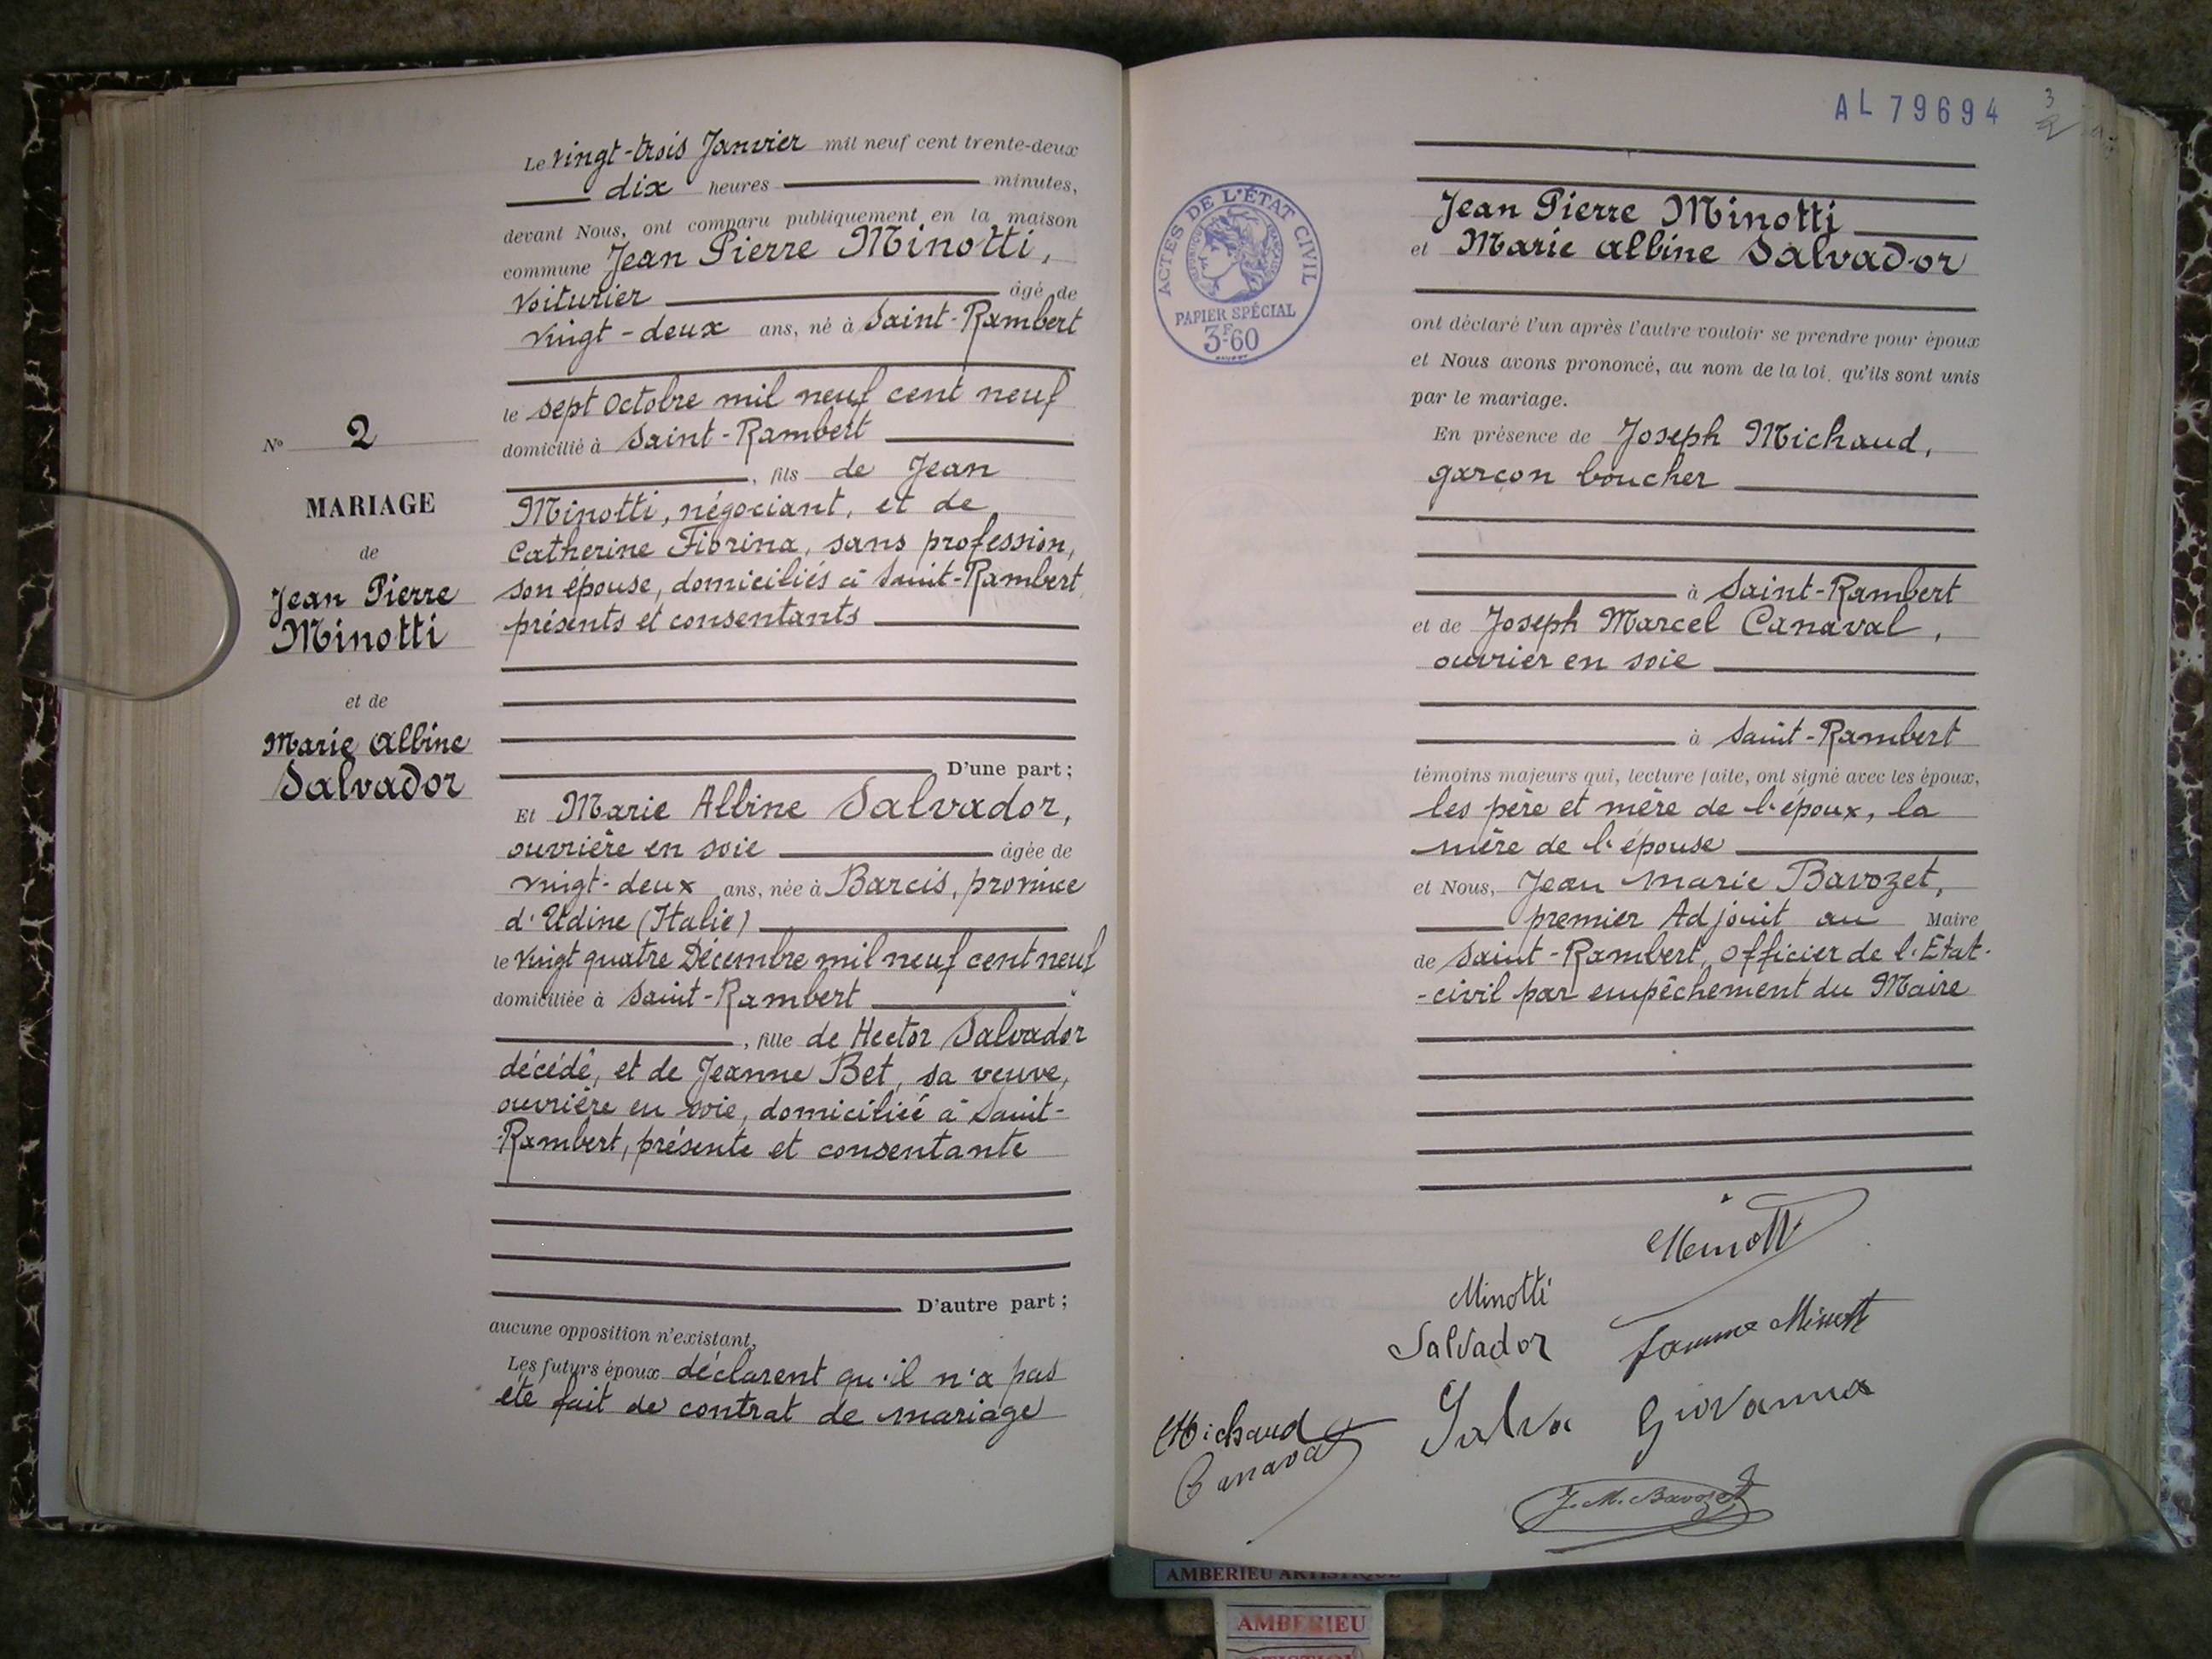 Le vingt-trois Janvier mil neuf cent trente-deux
dix heures minutes,
devant Nous, ont comparu publiquement en la maison
commune Jean Pierre Minotti,
voiturier âgé de
vingt-deux ans, né à Saint-Rambert
le sept Octobre mil neuf cent neuf
domicilié à Saint-Rambert
, fils de Jean
Minotti, négociant, et de
Catherine Fiorina, sans profession,
son épouse, domiciliés à Saint-Rambert,
présents et consentants
D'une part ;
Et Marie Albine Salvador,
ouvrière en soie âgée de
vingt-deux ans, née à Barcis, province
d'Udine (Italie)
le vingt quatre Décembre mil neuf cent neuf
domiciliée à Saint-Rambert
, fille de Hector Salvador
décédé, et de Jeanne Bet, sa veuve,
ouvrière en soie, domiciliée à Saint-
-Rambert, présente et consentante
D'autre part ;
aucune opposition n'existant,
Les futurs époux déclarent qu'il n'a pas
été fait de contrat de mariage
N° 2
MARIAGE
de
Jean Pierre
Minotti
et de
Marie Albine
Salvador
AL 79694
3
ACTES DE L'ÉTAT CIVIL
PAPIER SPÉCIAL
3F60
Jean Pierre Minotti
et Marie Albine Salvador
ont déclaré l'un après l'autre vouloir se prendre pour époux
et Nous avons prononcé, au nom de la loi, qu'ils sont unis
par le mariage.
En présence de Joseph Michaud,
garçon boucher
à Saint-Rambert
et de Joseph Marcel Canaval,
ouvrier en soie
à Saint-Rambert
témoins majeurs qui, lecture faite, ont signé avec les époux,
les père et mère de l'époux, la
mère de l'épouse
et Nous, Jean Marie Bavozet,
premier Adjoint au Maire
de Saint-Rambert, Officier de l'Etat-
-civil par empêchement du Maire
Minotti
Minotti
Salvador
Minotti
Salva Giovanna
Michaud
Canaval
J. M. Bavozet
AMBERIEU ARTISTIQUE
AMBERIEU